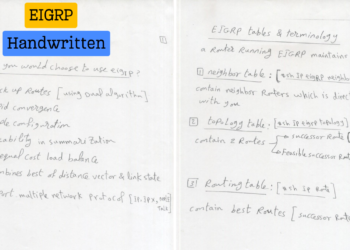 EIGRP
Handwritten
you would choose to use eigrp?
ck up Routes [using Dual algorithm]
id convergence
le configuration
cability in summarization
equal cost load balance
mbines best of distance vector & link state
port multiple network protocol [IP, IPX,
EIGRP tables & terminology
a Router Running EIGRP maintains
1 neighbor table: [# sh IP eigrp neighbor
contain neighbor Routers which is direct
with you
2 topology table: [# sh IP eigrp topology]
contain 2 Routes
successor Route
feasible successor
3 Routing table: [# sh IP Route]
contain best Routes [successor Rout